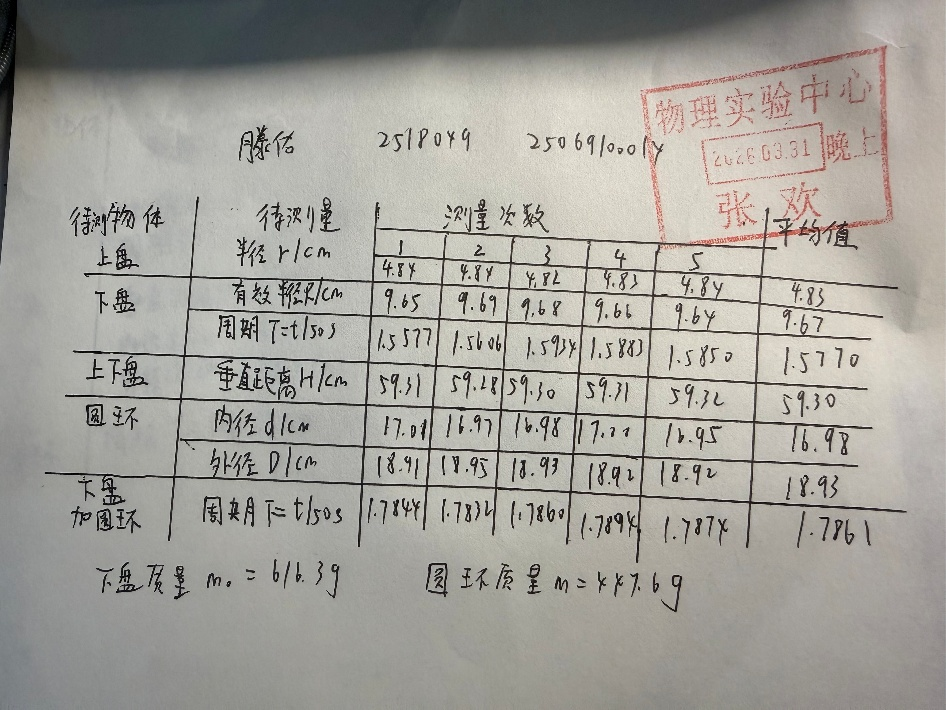 物理实验中心
2026.03.31 晚上
张欢
滕佑 2518049
待测物体 待测量 测量次数 平均值
上盘 半径 r/cm 1 2 3 4 5
4.84 4.84 4.82 4.83 4.84 4.83
下盘 有效半径R/cm 9.65 9.69 9.68 9.66 9.64 9.67
周期 T=t/50s 1.5577 1.5606 1.5934 1.5883 1.5850 1.5770
上下盘 垂直距离H/cm 59.31 59.28 59.30 59.31 59.32 59.30
圆环 内径d/cm 17.01 16.97 16.98 17.00 16.95 16.98
外径D/cm 18.91 18.95 18.93 18.92 18.92 18.93
下盘
加圆环 周期T=t/50s 1.7844 1.7832 1.7860 1.7894 1.7874 1.7861
下盘质量 m₀=616.3g 圆环质量 m=447.6g